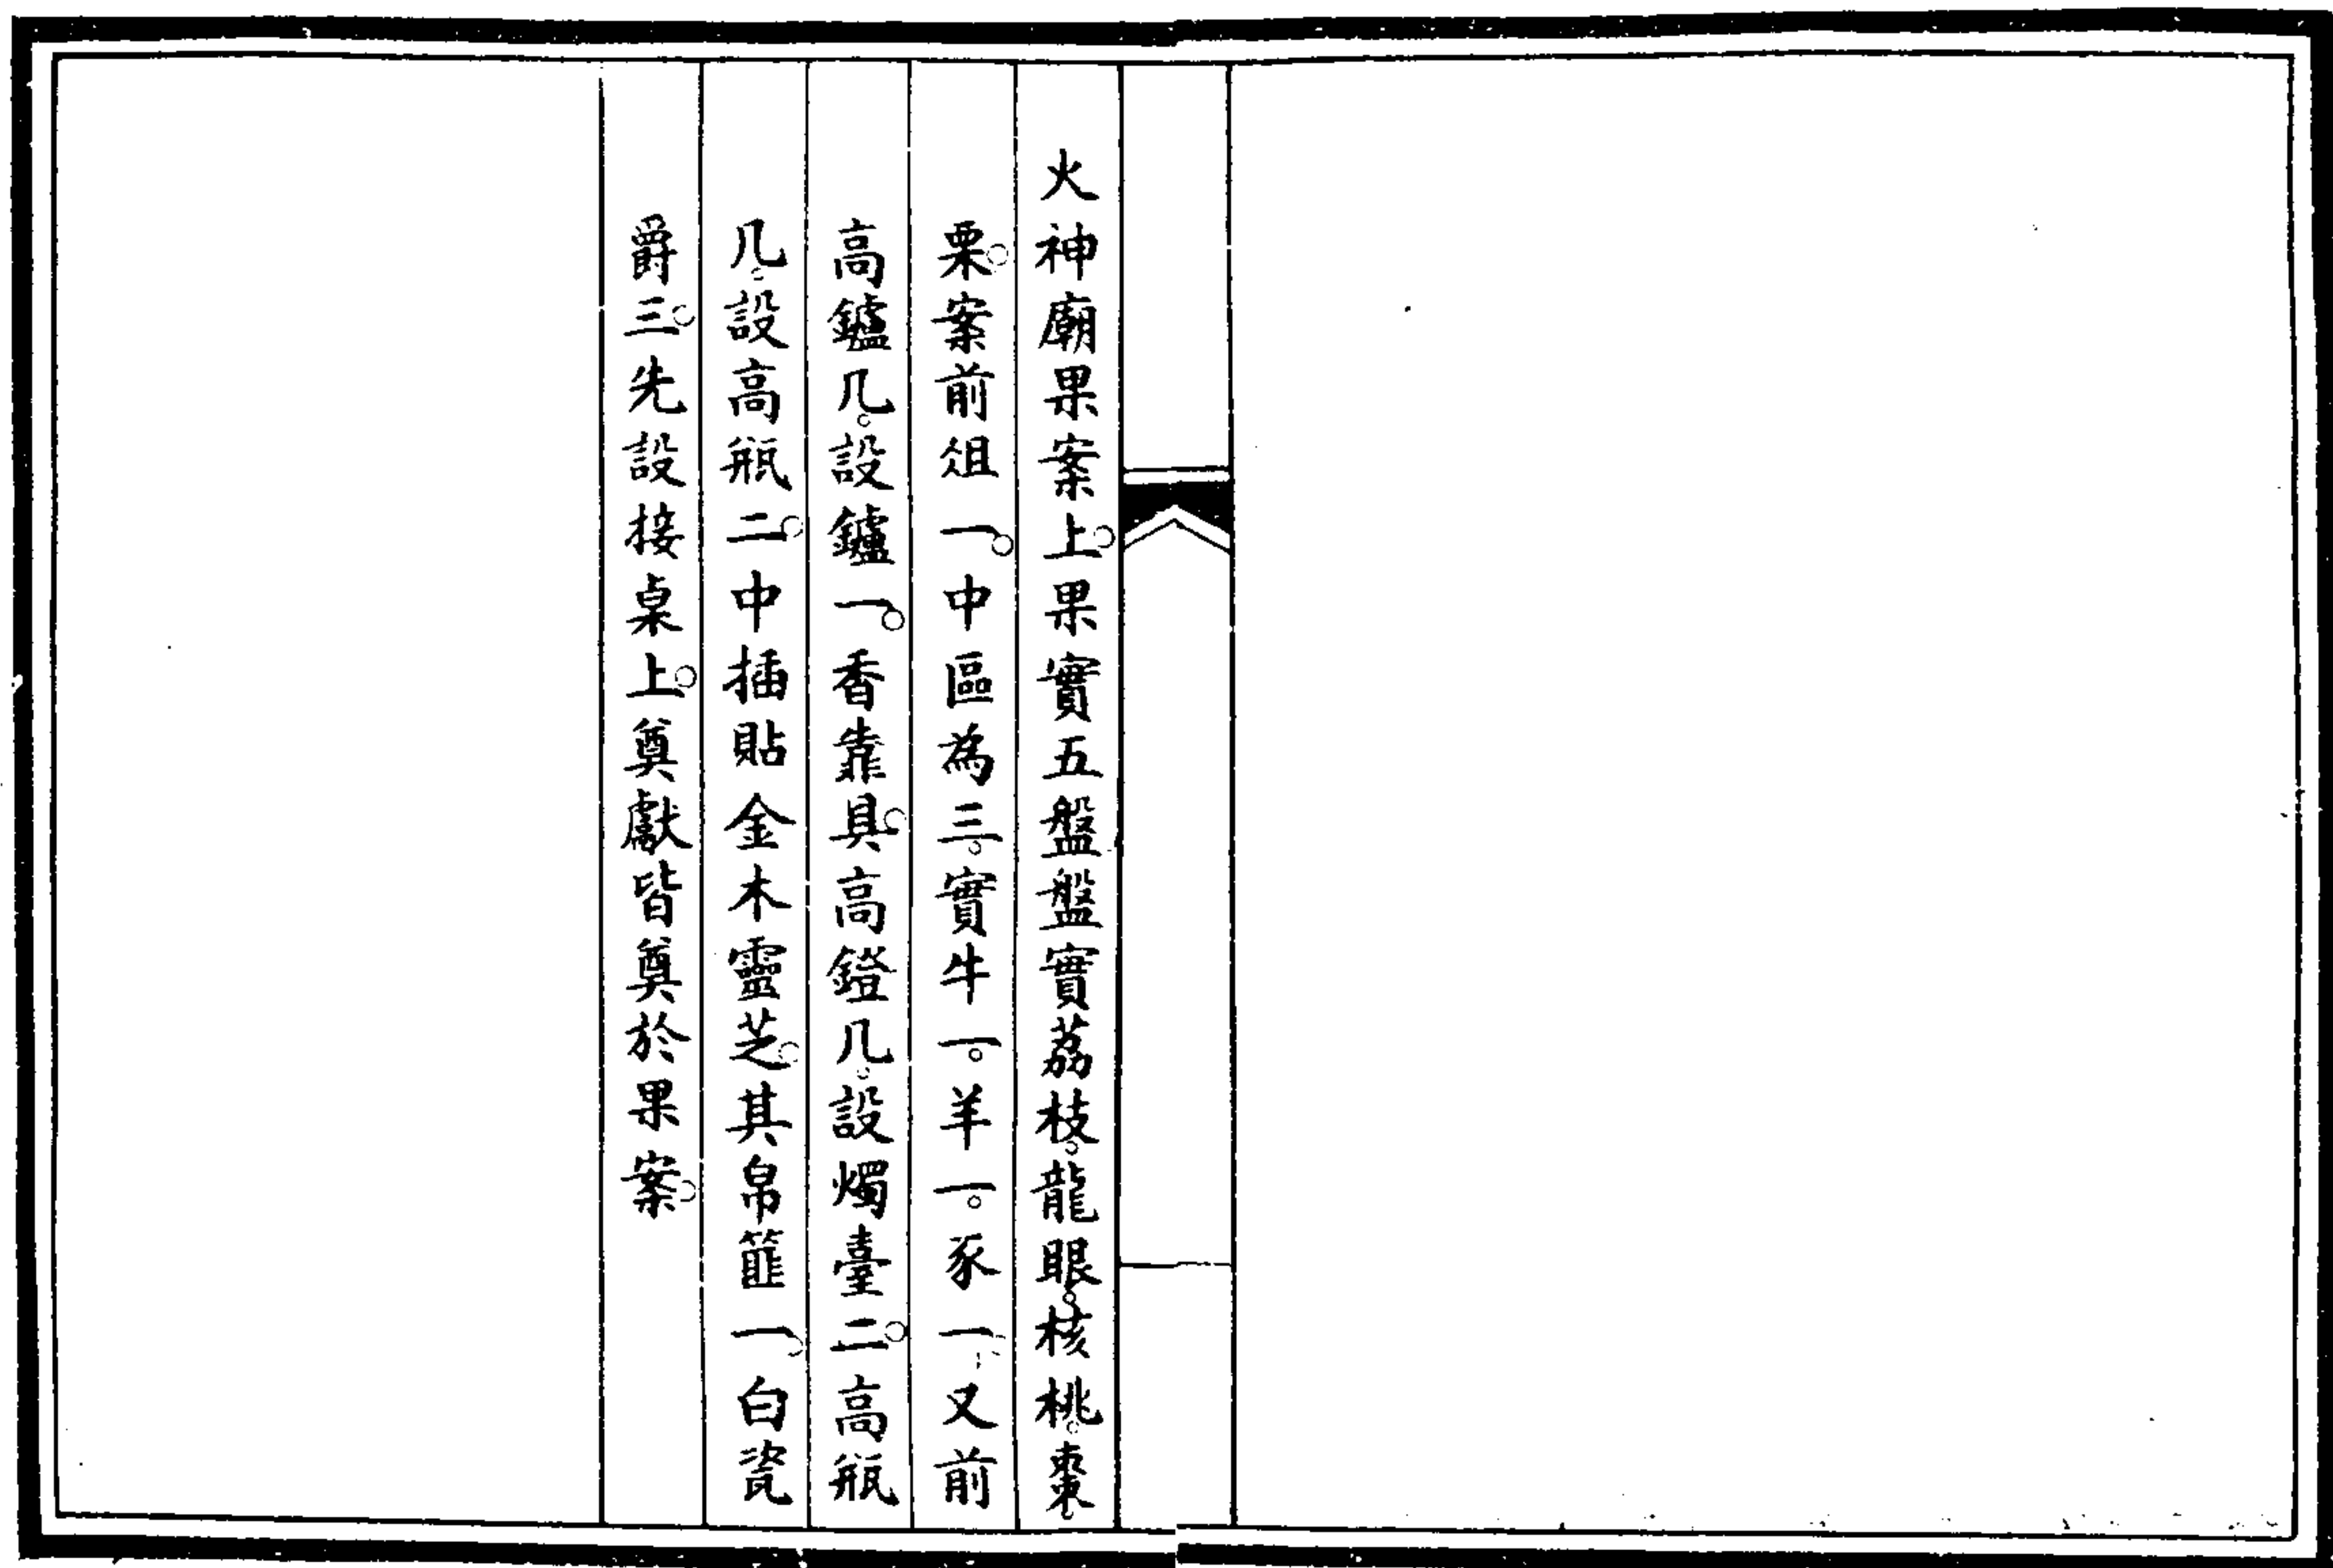 火神廟果案上。果實五盤盤實荔枝。龍眼。核桃。棗。
栗。案前俎一。中區為三。實牛一。羊一。豕一。又前
高鑪几。設鑪一。香靠具。高鐙几。設燭臺二。高瓶
几。設高瓶二。中插貼金木靈芝。其帛篚一。白瓷
爵三。先設接桌上。奠獻皆奠於果案。